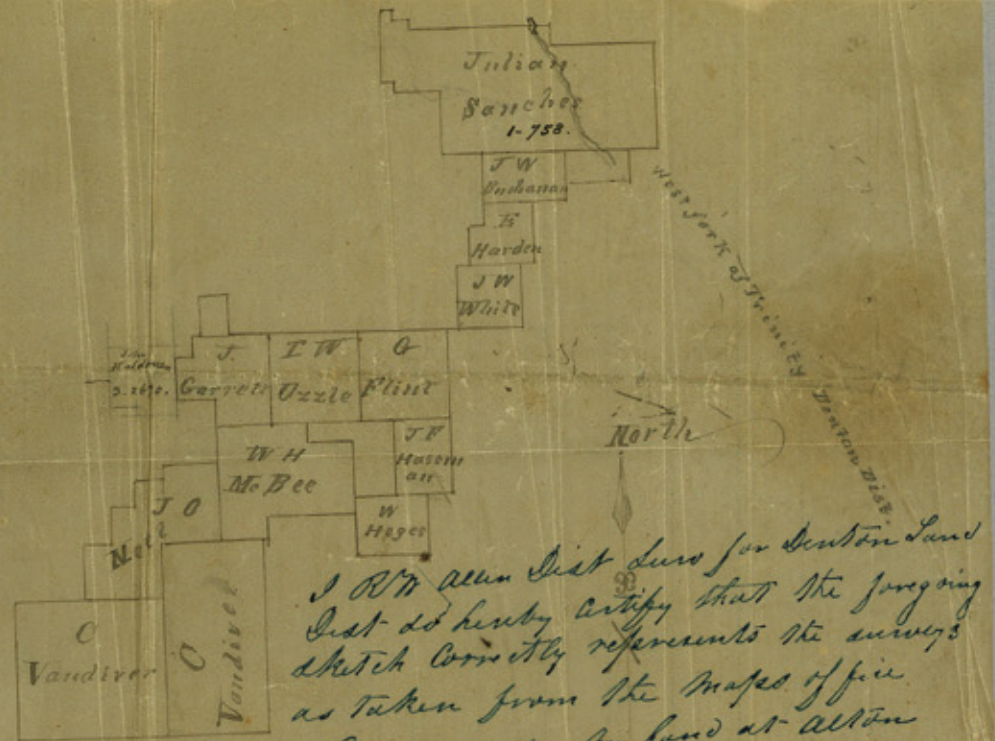 Julian
Sanches
1-758.
J W
Buchanan
E
Harden
J W
White
West fork of Trinity Denton Dist.
J.
Garrett
I W
Uzzle
G
Flint
North
W H
McBee
J F
W
J O
C
Vandiver
C
Vandiver
I R W Allen Dist Surv for Denton Land
Dist do hereby certify that the foregoing
sketch correctly represents the surveys
as taken from the maps office
land at Alton